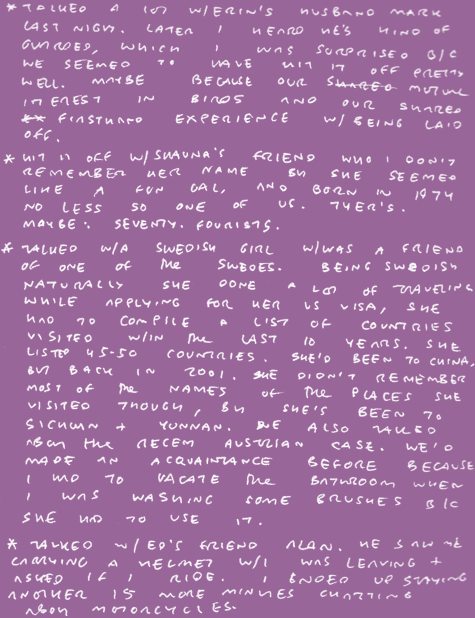 * TALKED A LOT W/ERIN'S HUSBAND MARK
LAST NIGHT. LATER I HEARD HE'S KIND OF
GUARDED, WHICH I WAS SURPRISED B/C
WE SEEMED TO HAVE HIT IT OFF PRETTY
WELL. MAYBE BECAUSE OUR SHARED MUTUAL
INTEREST IN BIRDS AND OUR SHARED
FIRSTHAND EXPERIENCE W/ BEING LAID
OFF.
* HIT IT OFF W/SHAUNA'S FRIEND WHO I DON'T
REMEMBER HER NAME BUT SHE SEEMED
LIKE A FUN GAL, AND BORN IN 1974
NO LESS SO ONE OF US. 74ER'S.
MAYBE: SEVENTY. FOURISTS.
* TALKED W/A SWEDISH GIRL W/WAS A FRIEND
OF ONE OF THE SWEDES. BEING SWEDISH
NATURALLY SHE DONE A LOT OF TRAVELING
WHILE APPLYING FOR HER US VISA, SHE
HAD TO COMPILE A LIST OF COUNTRIES
VISITED W/IN THE LAST 10 YEARS. SHE
LISTED 45-50 COUNTRIES. SHE'D BEEN TO CHINA,
BUT BACK IN 2001. SHE DIDN'T REMEMBER
MOST OF THE NAMES OF THE PLACES SHE
VISITED THOUGH, BUT SHE'S BEEN TO
SICHUAN + YUNNAN. WE ALSO TALKED
ABOUT THE RECENT AUSTRIAN CASE. WE'D
MADE AN ACQUAINTANCE BEFORE BECAUSE
I HAD TO VACATE THE BATHROOM WHEN
I WAS WASHING SOME BRUSHES B/C
SHE HAD TO USE IT.
* TALKED W/ ED'S FRIEND ALAN. HE SAW ME
CARRYING A HELMET W/I WAS LEAVING +
ASKED IF I RIDE. I ENDED UP STAYING
ANOTHER 15 MORE MINUTES CHATTING
ABOUT MOTORCYCLES.